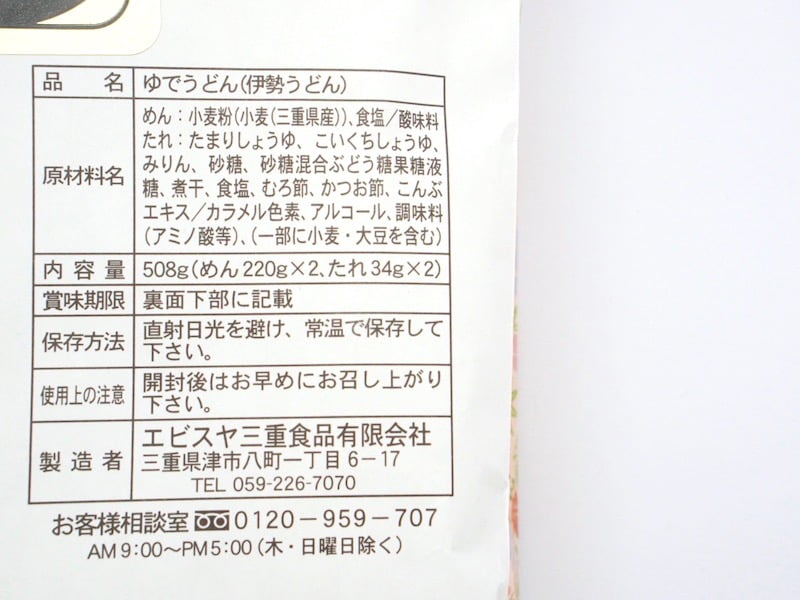 品名 ゆでうどん(伊勢うどん)
原材料名
めん：小麦粉(小麦(三重県産))、食塩／酸味料
たれ：たまりしょうゆ、こいくちしょうゆ、
みりん、砂糖、砂糖混合ぶどう糖果糖液
糖、煮干、食塩、むろ節、かつお節、こんぶ
エキス／カラメル色素、アルコール、調味料
(アミノ酸等)、(一部に小麦・大豆を含む)
内容量 508g(めん220g×2、たれ34g×2)
賞味期限 裏面下部に記載
保存方法
直射日光を避け、常温で保存して
下さい。
使用上の注意
開封後はお早めにお召し上がり
下さい。
製造者
エビスヤ三重食品有限会社
三重県津市八町一丁目6－17
TEL 059-226-7070
お客様相談室 0120－959－707
AM9:00〜PM5:00(木・日曜日除く)